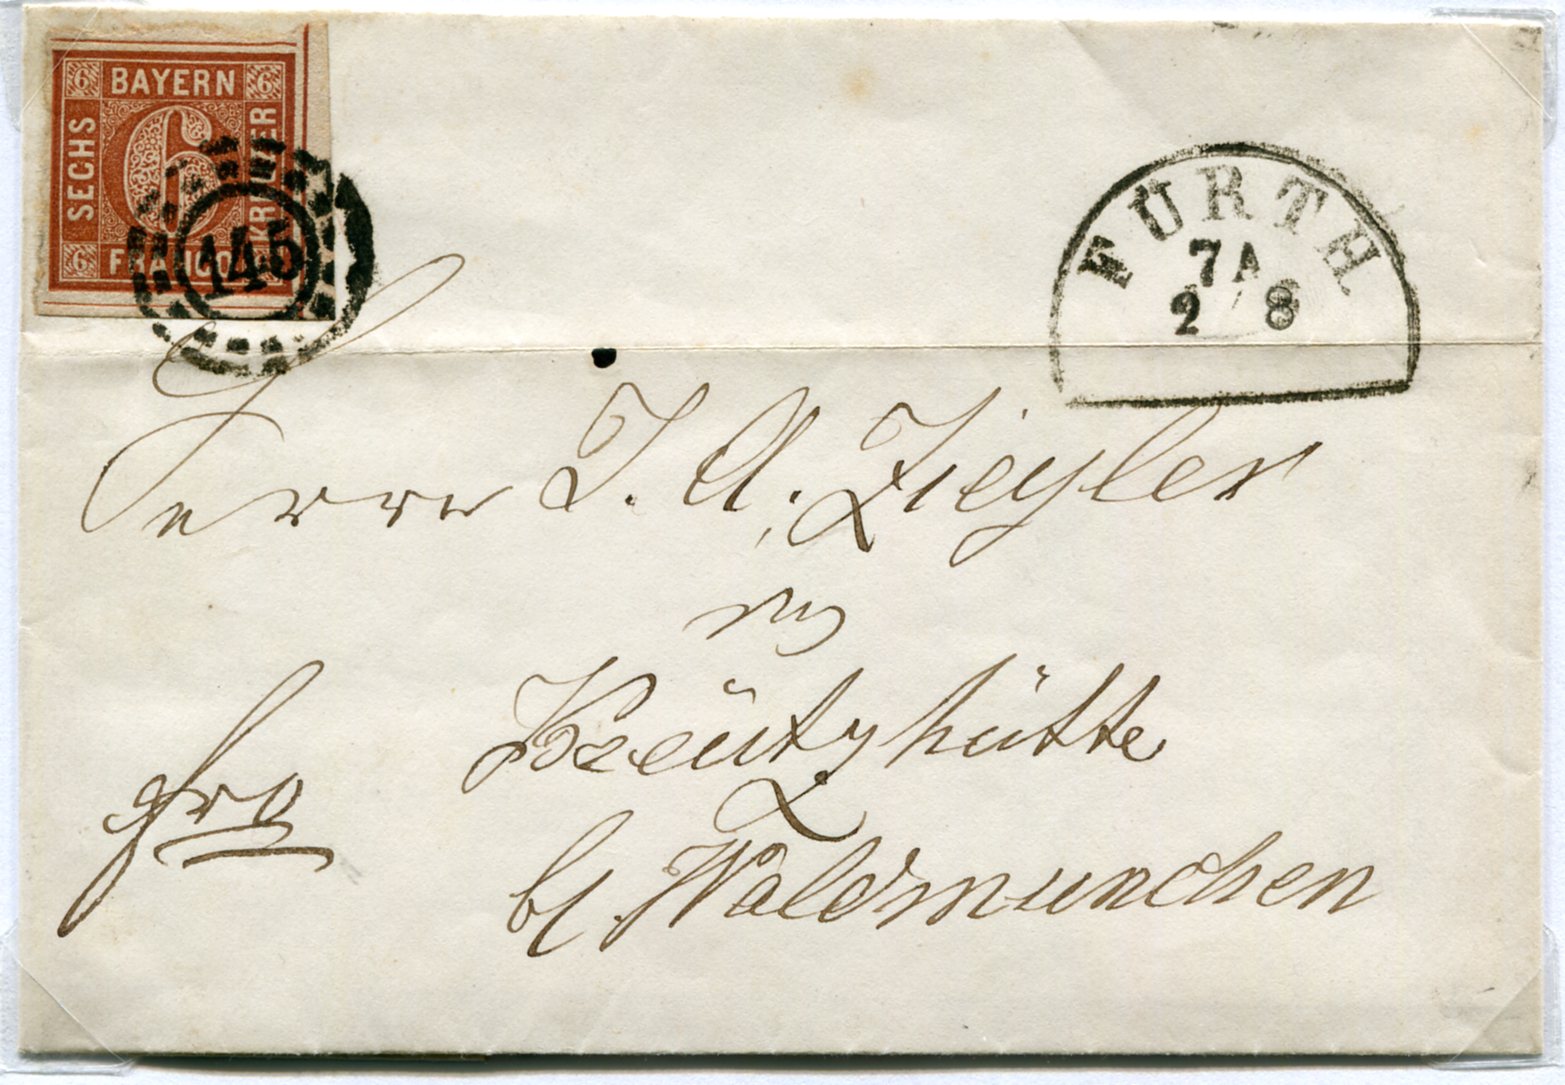 6 BAYERN 6
SECHS
6
KREUZER
6 FRANCO 6
145
FÜRTH
7 A
2 / 8
Herrn J. A. Ziegler
in
Kreützhütte
fro
b/. Waldmünchen